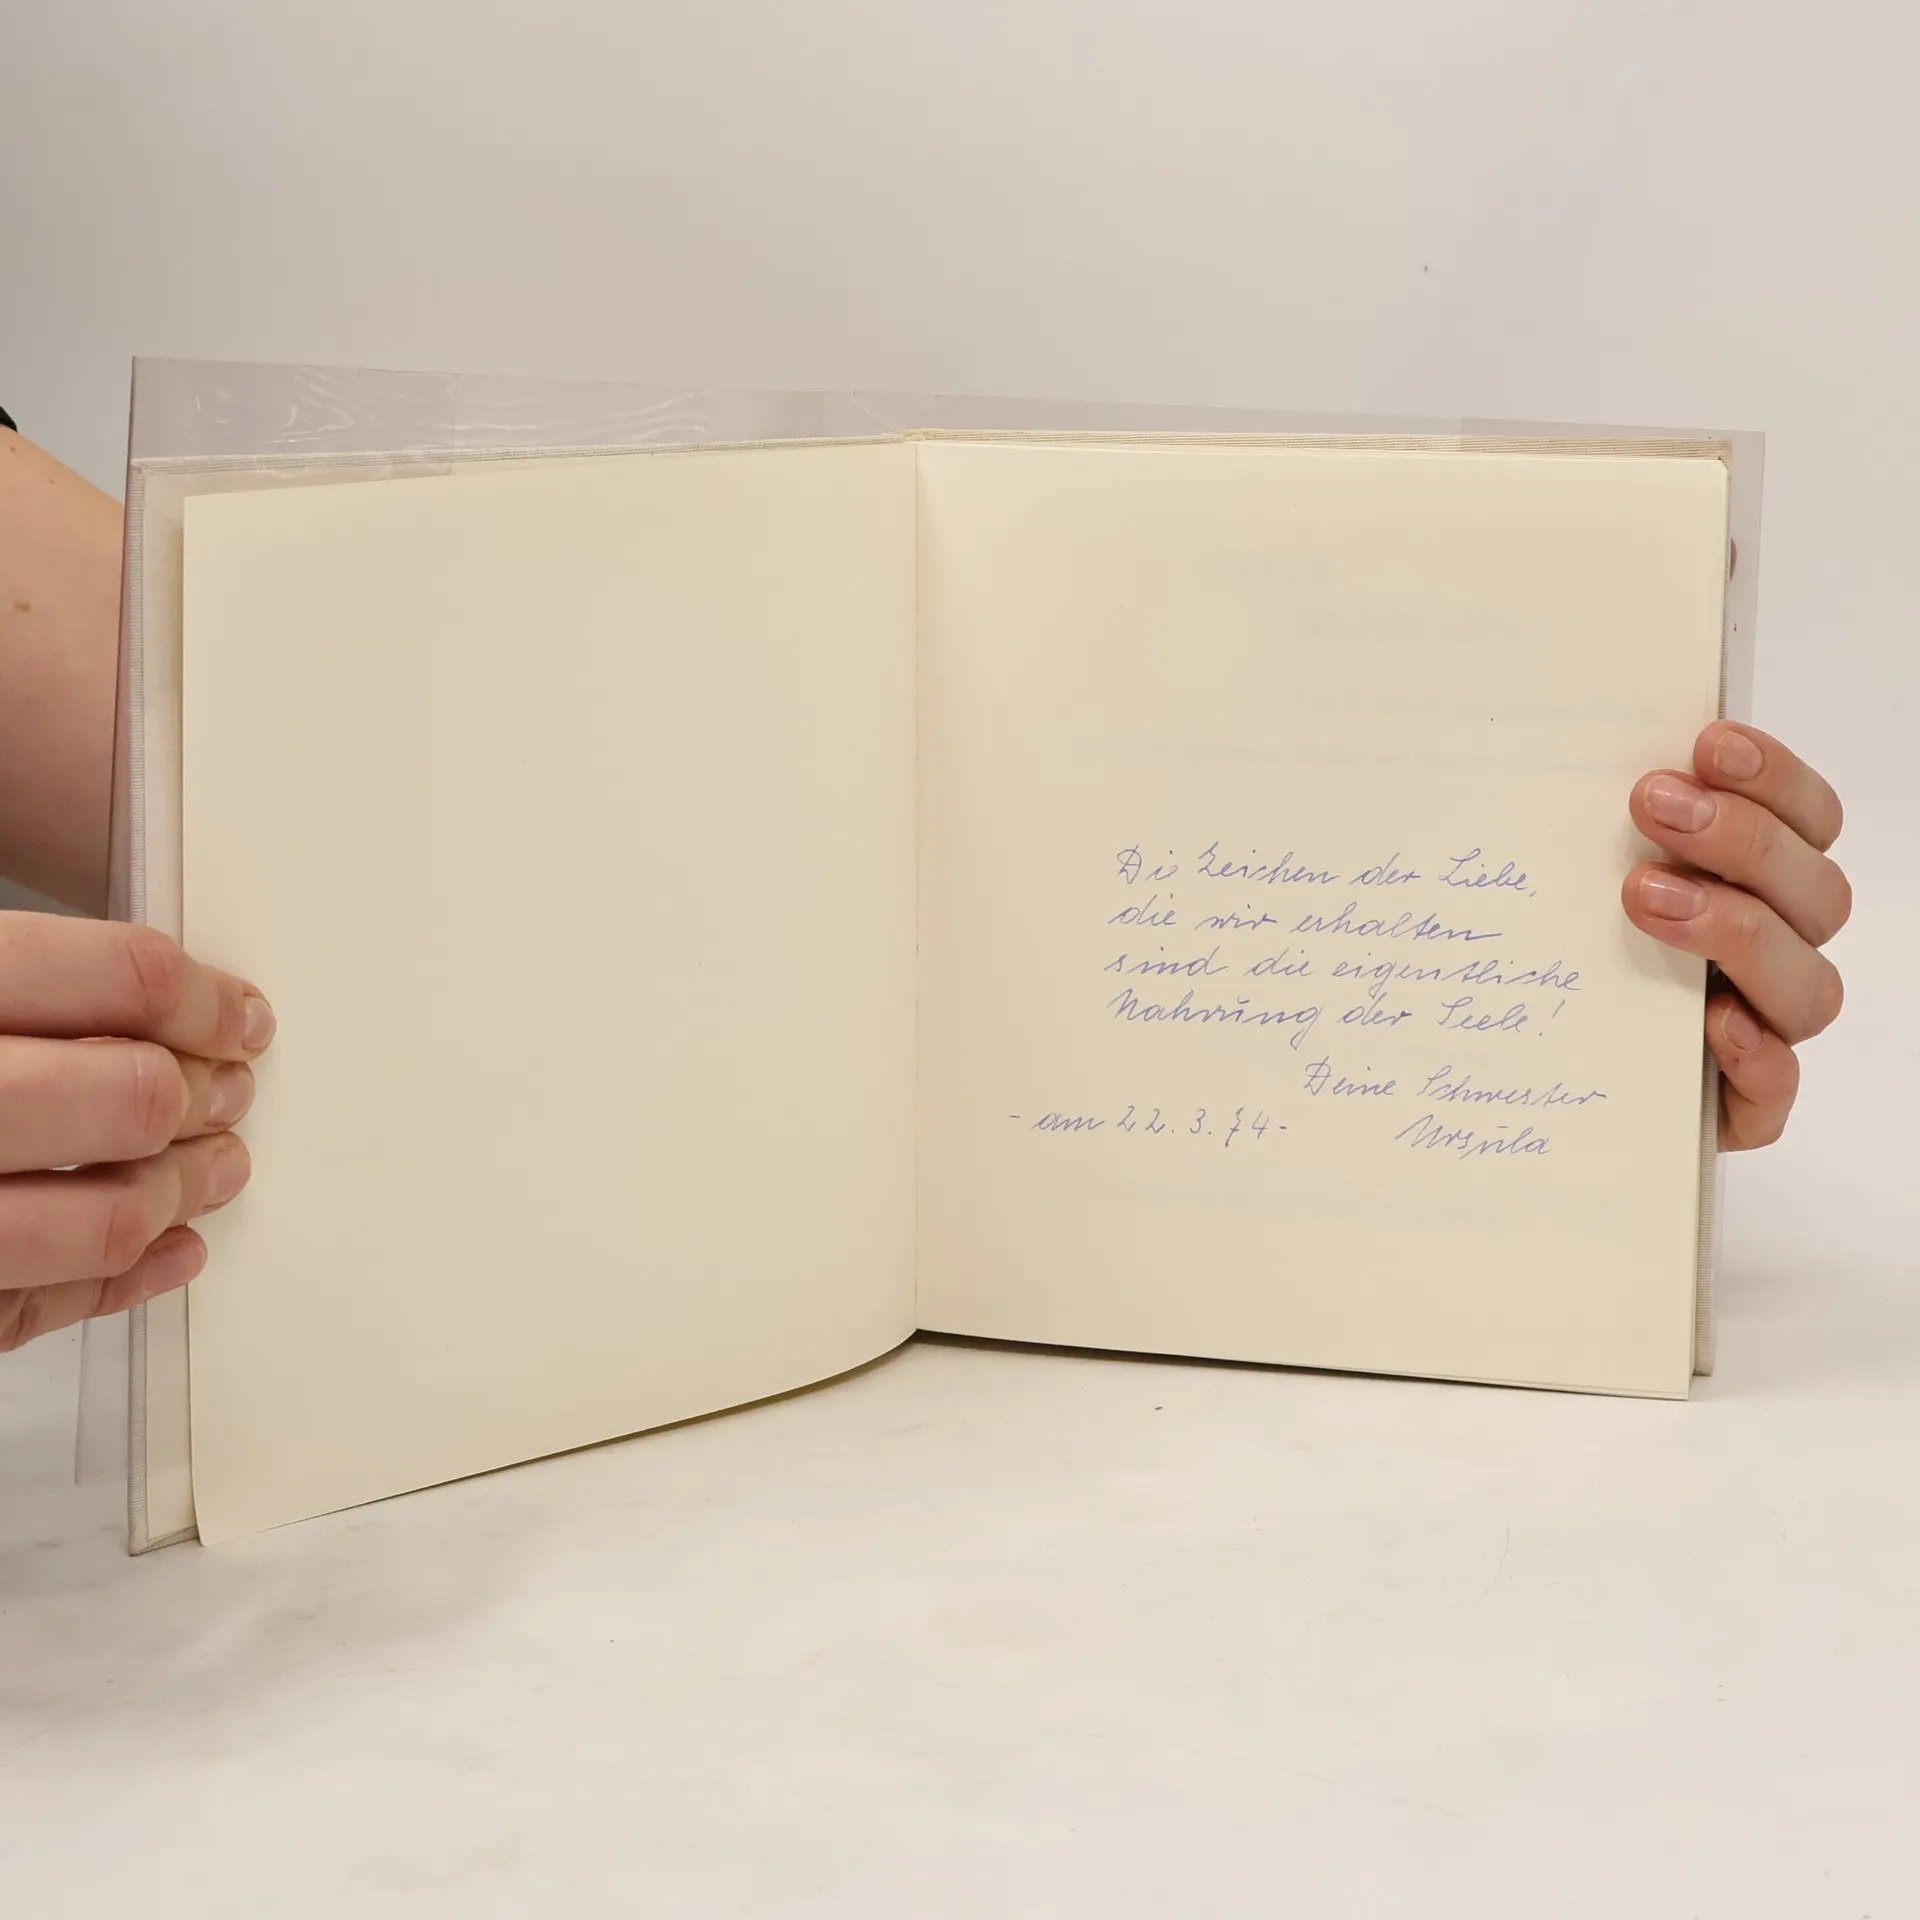 Die Zeichen der Liebe,
die wir erhalten
sind die eigentliche
Nahrung der Seele!
Deine Schwester
- am 22.3.74- Ursula